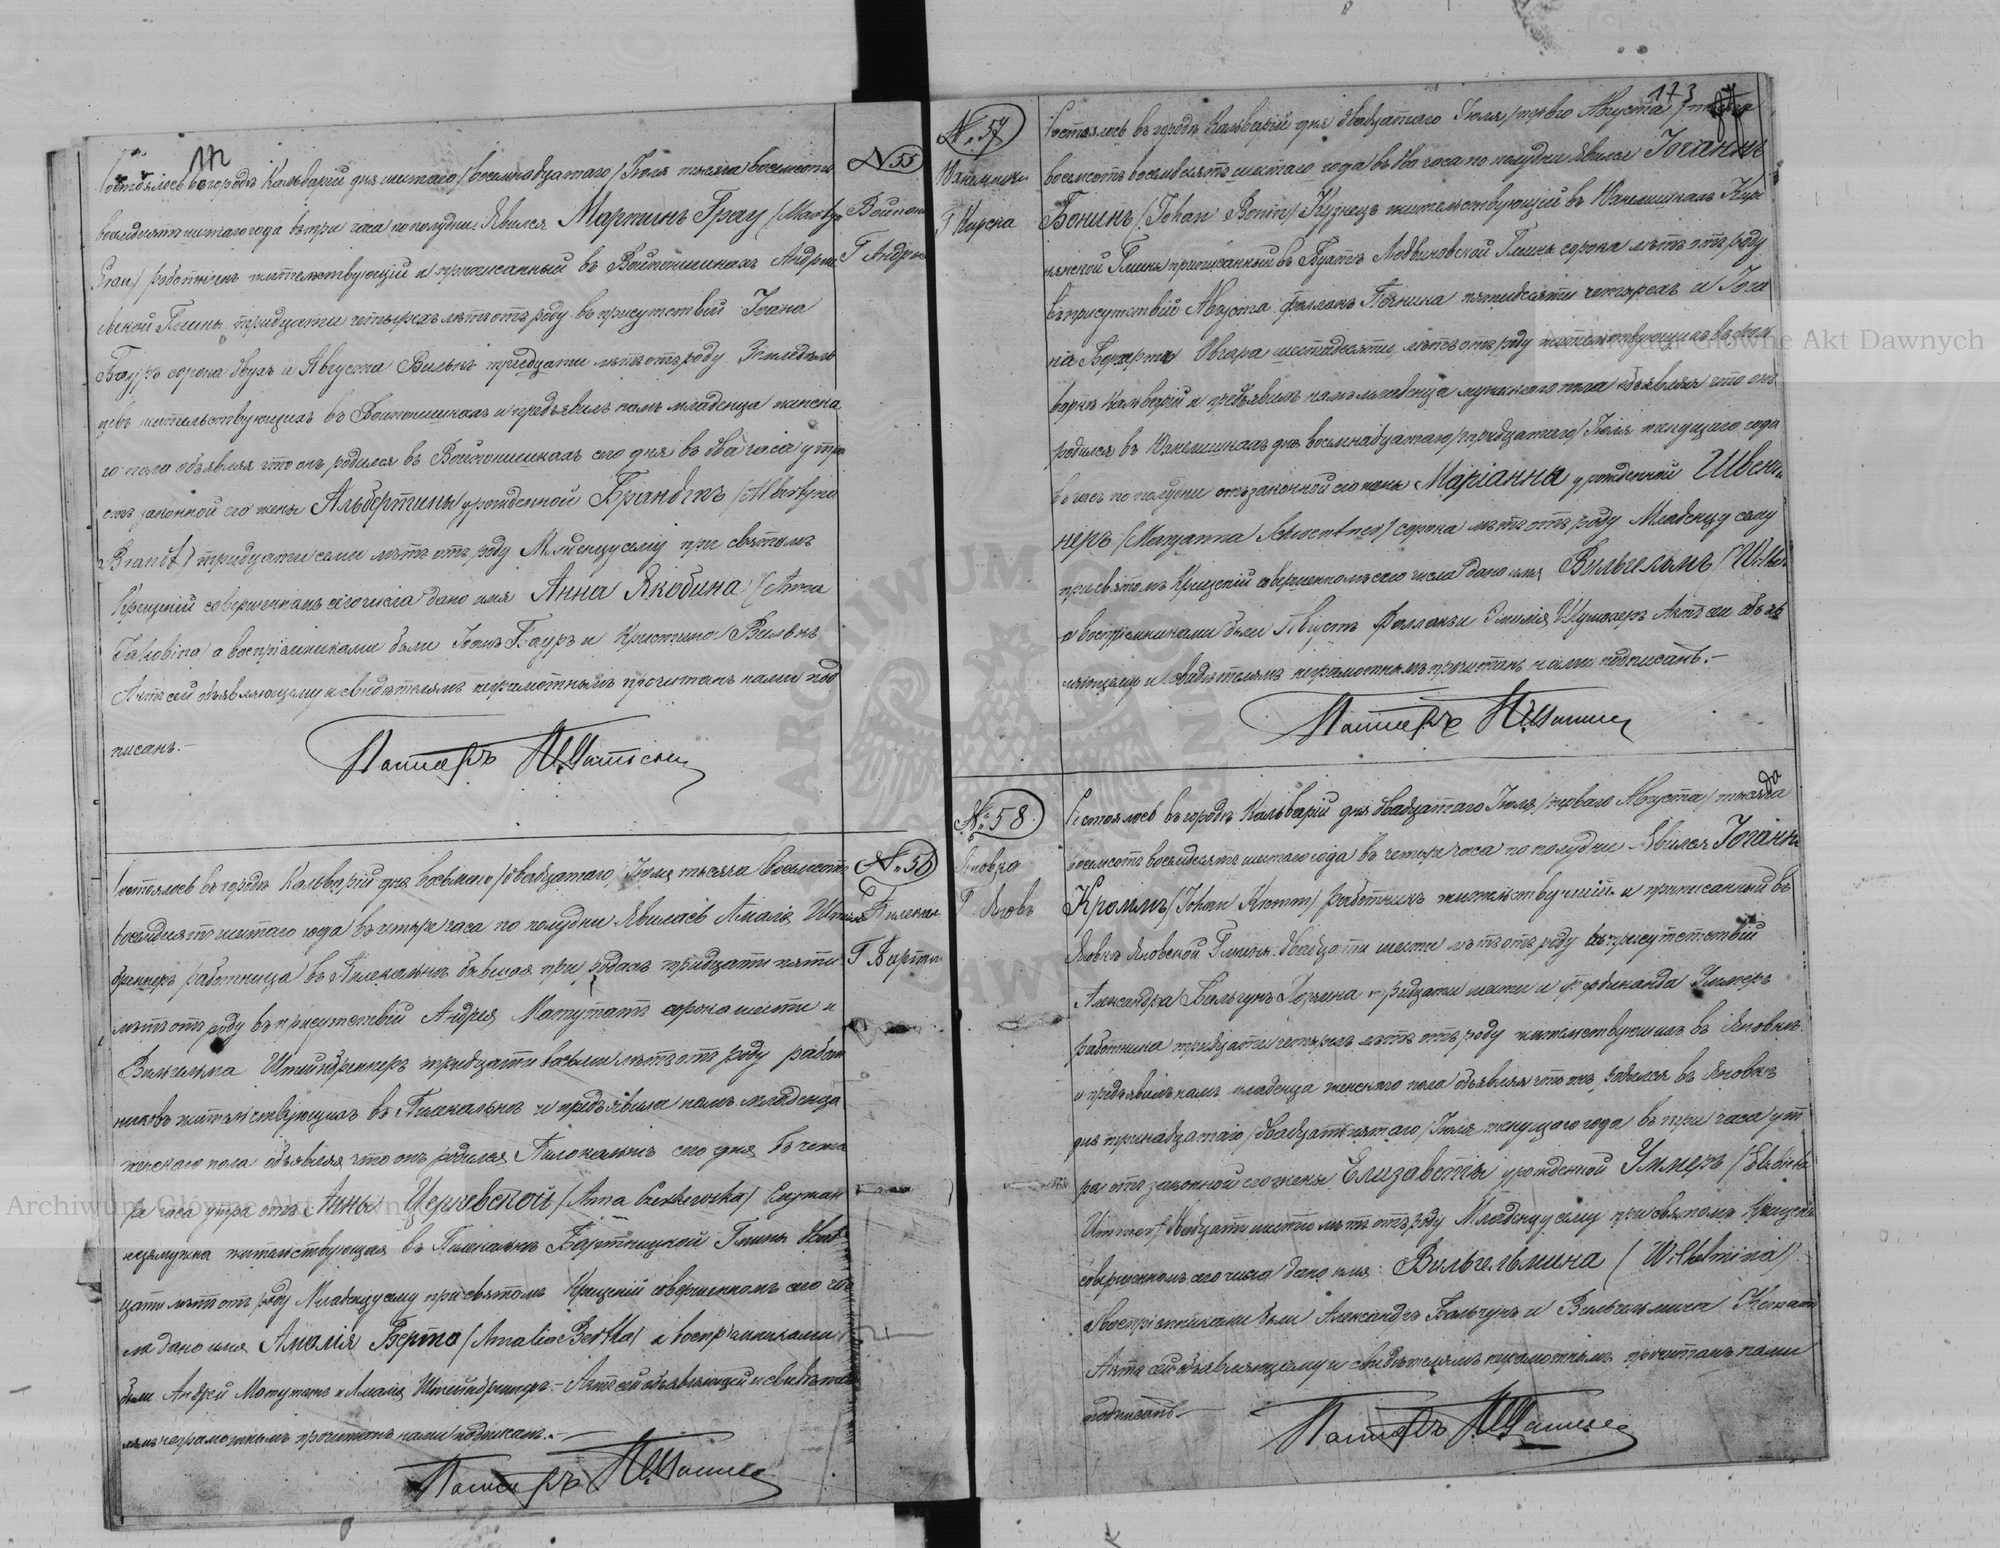 172
№ 55
Войпони
Г Андрее
Состоялось въ городѣ Кальваріи дня шестаго /восемнадцатаго/ Іюля тысяча восемсотъ
восемдесятъ шестаго года въ три часа по полудни. Явился Мартинъ Грау /Martyn
Grau/ работникъ жительствующій и приписанный въ Войпонишкахъ Андрее
вской Гмины тридцати четырехъ лѣтъ отъ роду въ присутствіи Іоана
Бауръ сорока двухъ и Августа Вильнъ тридцати лѣтъ отъ роду Земледѣль
цевъ жительствующихъ въ Войпонишкахъ и предъявилъ намъ младенца женска
го пола объявляя что онъ родился въ Войпонишкахъ сего дня въ два часа утра
отъ законной его жены Альбертины урожденной Брандтъ /Albertyna
Brandt/ тридцати семи лѣтъ отъ роду Младенцу сему при святомъ
Крещеніи совершенномъ сего числа дано имя Анна Якобина /Anna
Jakobina/ а воспріемниками были Іоанъ Бауръ и Кристина Вильнъ
Актъ сей объявляющему и свидѣтелямъ неграмотнымъ прочитанъ нами под
писанъ.—
Пасторъ
№ 56
Пилекаль
Г Бартн
Состоялось въ городѣ Кальваріи дня восьмаго /двадцатаго/ Іюля тысяча восемсотъ
восемдесятъ шестаго года въ четыре часа по полудни Явилась Амалія Штейн
бреннеръ работница въ Пилекальнѣ бывшая при родахъ тридцати пяти
лѣтъ отъ роду въ присутствіи Андрея Матутатъ сорока шести и
Вильгельма Штейнбреннеръ тридцати восьми лѣтъ отъ роду работ
никовъ жительствующихъ въ Пилекальнѣ и предъявила намъ младенца
женскаго пола объявляя что онъ родился Пилекальнѣ сего дня въ четы
ре часа утра отъ Анны /Anna/
незамужна жительствующая въ Пилекальнѣ Бартнинкской Гмины двад
цати лѣтъ отъ роду Младенцу сему при святомъ Крещеніи совершенномъ сего чис
ла дано имя Амалія Берта /Amalia Bertha/ а воспріемниками
были Андрей Матутатъ и Амалія Штейнбреннеръ.— Актъ сей объявляющей и свидѣте
лямъ неграмотнымъ прочитанъ нами подписанъ.—
Пасторъ
173
№ 57
Г Кирсна
Состоялось въ городѣ Кальваріи дня двадцатаго Іюля /перваго Августа/ тысяча
восемсотъ восемдесятъ шестаго года въ два часа по полудни Явился Іоганнъ
Бонинъ /Johan Bonin/ Кузнецъ жительствующій въ Кир
снянской Гмины приписанный въ Людвиновской Гминѣ сорока лѣтъ отъ роду
въ присутствіи Августа Фалланъ пятидесяти четырехъ и Іога
на шестидесяти лѣтъ отъ роду жительствующихъ въ
Кальваріи и предъявилъ намъ младенца мужескаго пола объявляя что онъ
родился въ дня восемнадцатаго /тридцатаго/ Іюля текущаго года
въ часъ по полудни отъ законной его жены Маріанна урожденной
/Maryanna/ сорока лѣтъ отъ роду Младенцу сему
при святомъ Крещеніи совершенномъ сего числа дано имя Вильгельмъ
а воспріемниками были Августъ Фалланъ и Эмилія Шумахеръ Актъ сей объяв
ляющему и свидѣтелямъ неграмотнымъ прочитанъ нами подписанъ.—
Пасторъ
№ 58
Яновка
Г. Яновъ
Состоялось въ городѣ Кальваріи дня двадцатаго Іюля /перваго Августа/ тысяча
восемсотъ восемдесятъ шестаго года въ четыре часа по полудни Явился Іоганнъ
Кроммъ /Johan Kromm/ работникъ жительствующій и приписанный въ
Яновкѣ Яновской Гмины двадцати шести лѣтъ отъ роду въ присутствіи
Александра Бальчунъ тридцати шести и Фердинанда Уммеръ
работника тридцати четырехъ лѣтъ отъ роду жительствующихъ въ Яновкѣ
и предъявилъ намъ младенца женскаго пола объявляя что онъ родился въ Яновкѣ
дня тринадцатаго /двадцать пятаго/ Іюля текущаго года въ три часа ут
ра отъ законной его жены Елизаветы урожденной Уммеръ /Elżbieta
Ummer/ двадцати шести лѣтъ отъ роду Младенцу сему при святомъ Крещеніи
совершенномъ сего числа дано имя: Вильгельмина /Wilhelmina/
а воспріемниками были Александръ Бальчунъ и Вильгельмина
Актъ сей объявляющему и свидѣтелямъ неграмотнымъ прочитанъ нами
подписанъ.—
Пасторъ
Archiwum Główne Akt Dawnych
Archiwum Główne Akt Dawnych